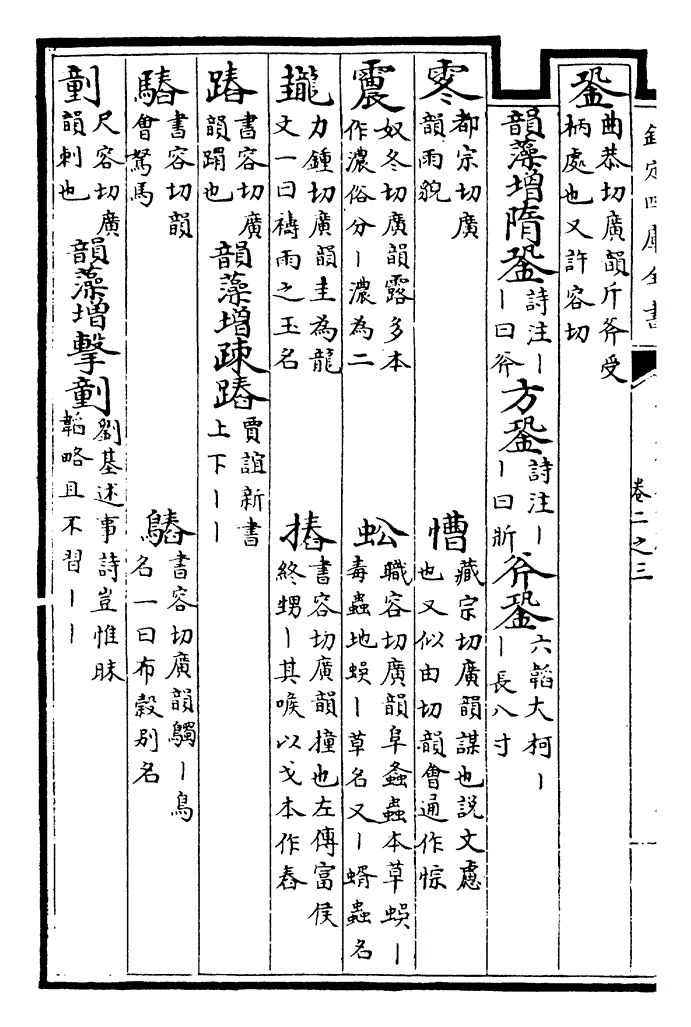 欽定四庫全書
卷二之三
銎曲恭切廣韻斤斧受柄處也又許容切
韻藻增隋銎詩注丨丨曰斧方銎詩注丨丨曰斨斧銎六韜大柯丨丨長八寸
零都宗切廣韻雨貌
慒藏宗切廣韻謀也說文慮也又似由切韻會通作悰
震奴冬切廣韻露多本作濃俗分丨濃為二
蚣職容切廣韻阜螽蟲本草蜈丨毒蟲地蜈丨草名又丨蝑蟲名
瓏力鍾切廣韻圭為龍文一曰禱雨之玉名
摏書容切廣韻撞也左傳富侯終甥丨其喉以戈本作舂
蹖書容切廣韻蹋也韻藻增疎蹖賈誼新書上下丨丨
䮲書容切韻會駑馬
鰆書容切廣韻鸀丨鳥名一曰布穀別名
剷尺容切廣韻刺也韻藻增擊剷劉基述事詩豈惟昧韜略且不習丨丨